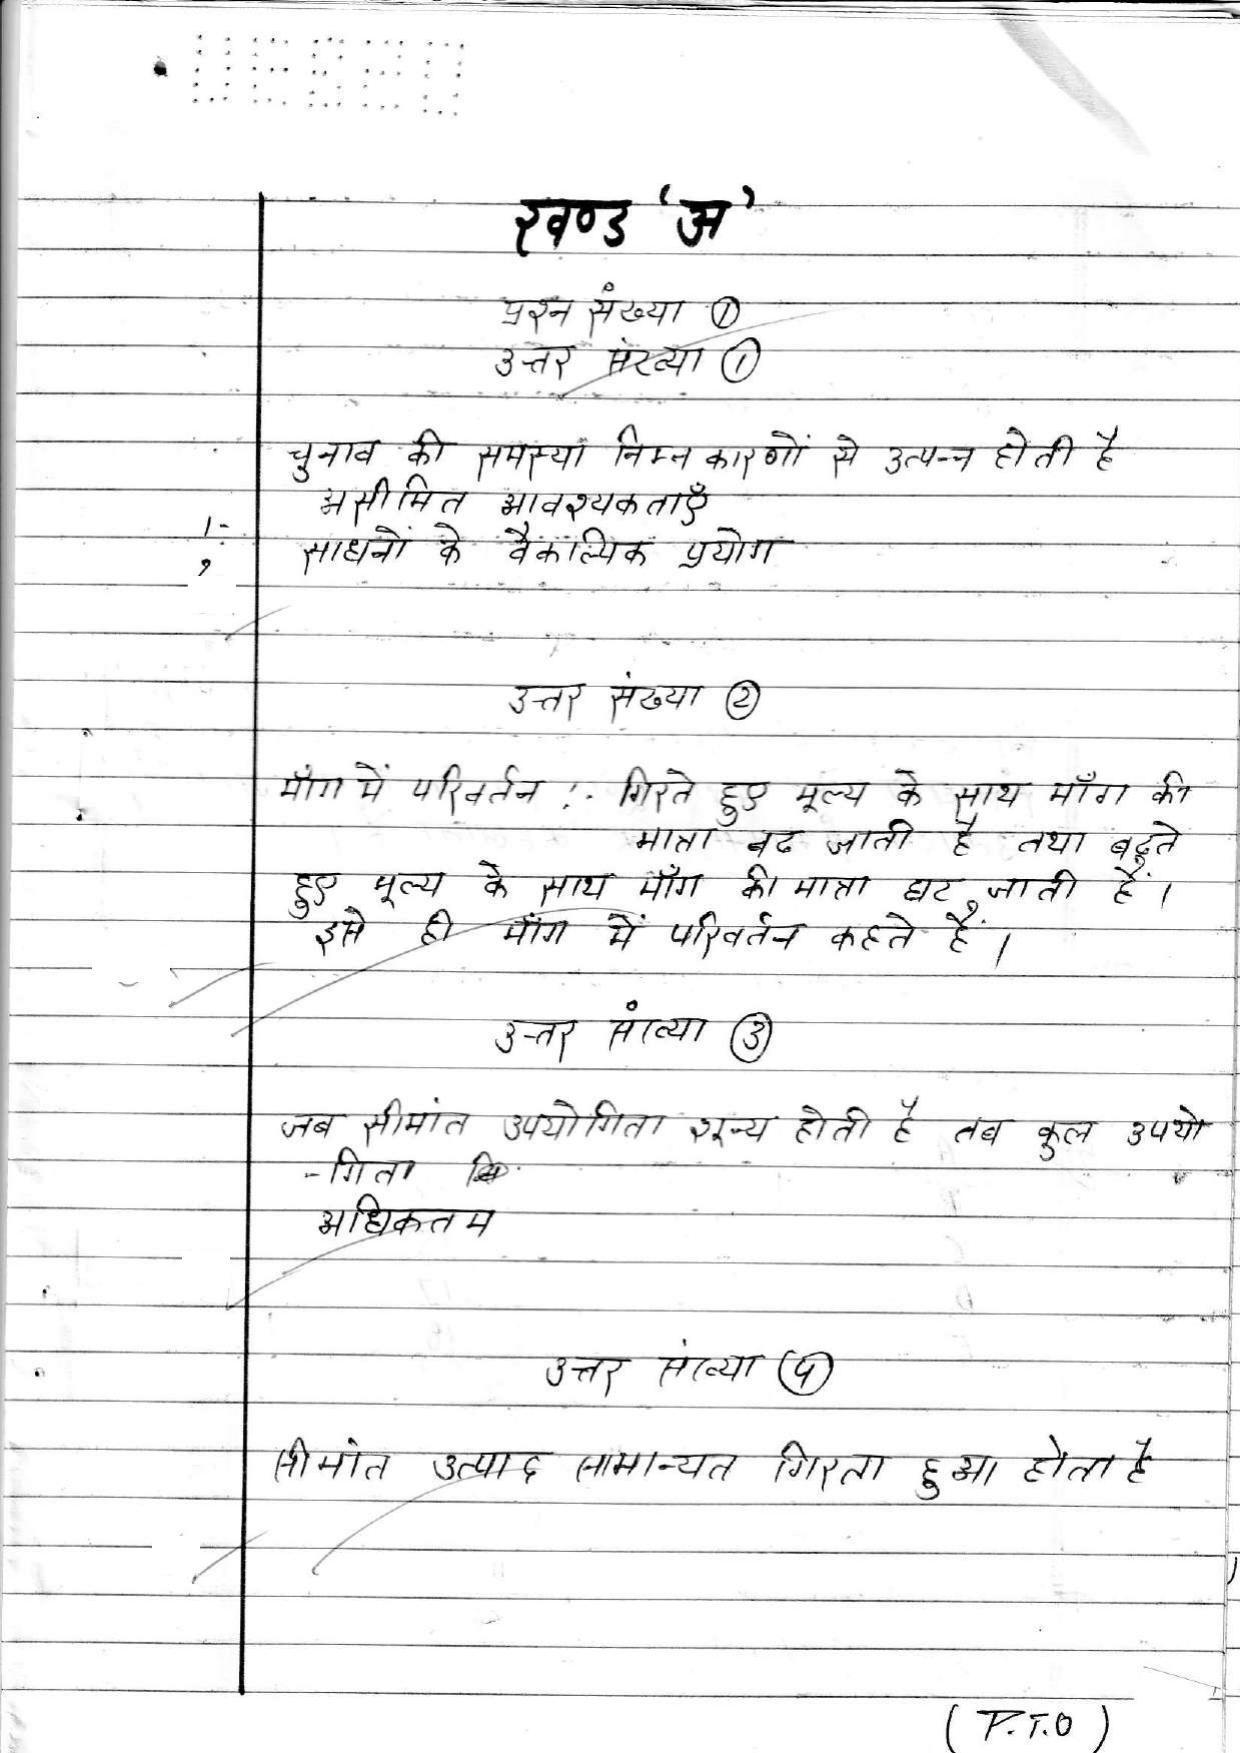 खण्ड 'अ'
प्रश्न संख्या ①
उत्तर संख्या ①
चुनाव की समस्या निम्न कारणों से उत्पन्न होती है
असीमित आवश्यकताएँ
1:-
साधनों के वैकल्पिक प्रयोग
उत्तर संख्या ②
माँग में परिवर्तन :- गिरते हुए मूल्य के साथ माँग की
मात्रा बढ जाती है तथा बढ़ते
हुए मूल्य के साथ माँग की मात्रा घट जाती हैं।
इसे ही माँग में परिवर्तन कहते हैं।
उत्तर संख्या ③
जब सीमांत उपयोगिता शून्य होती है तब कुल उपयो
-गिता
अधिकतम
उत्तर संख्या ④
सीमांत उत्पाद सामान्यत गिरता हुआ होता है
(P.T.O)